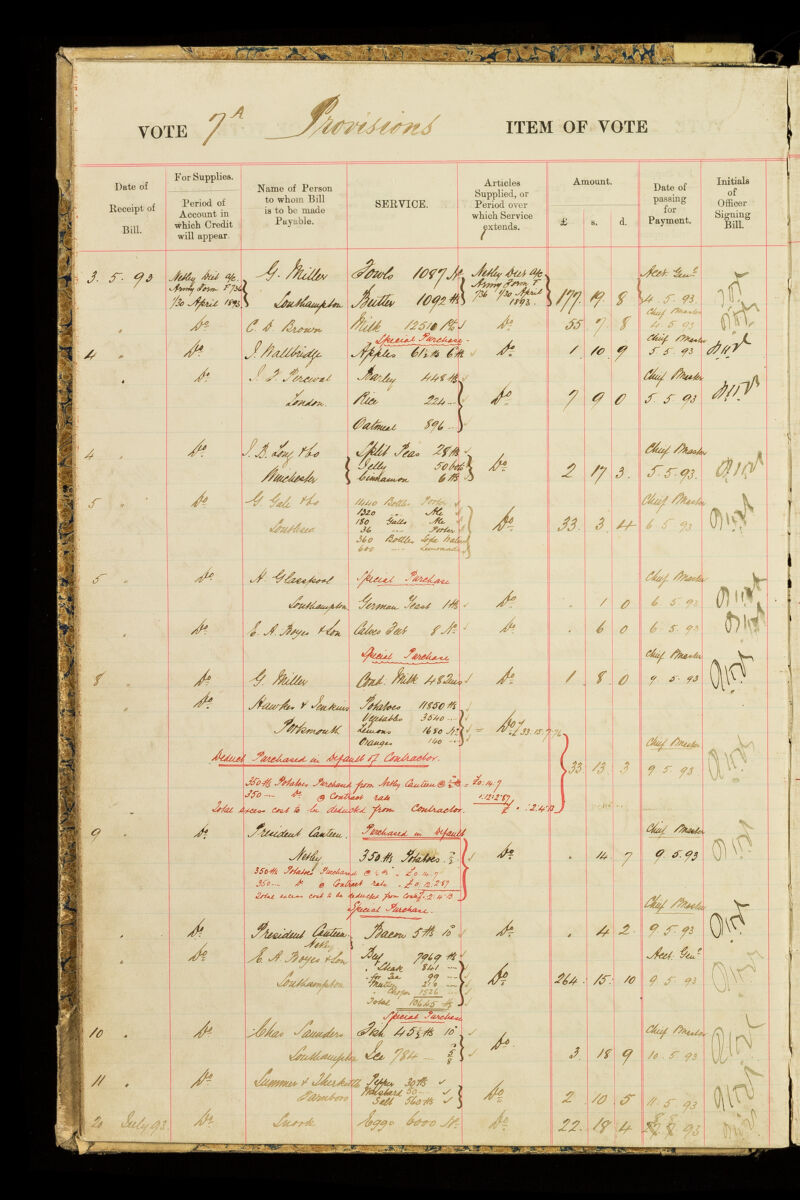 VOTE 7A Provisions ITEM OF VOTE
Date of Receipt of Bill.
For Supplies. Period of Account in which Credit will appear.
Name of Person to whom Bill is to be made Payable.
SERVICE.
Articles Supplied, or Period over which Service extends.
Amount. £ s. d.
Date of passing for Payment.
Initials of Officer Signing Bill.
3. 5. 93 Netley Diet a/c. G. Miller Fowls 1087 No Netley Diet a/c. Acct. Genl
Army Form F 736 Army Form F
1/30 April 1893. Southampton Butter 1092 lb 736 1/30 April 1893. 177. 19. 8 4. 5. 93.
" Do C. D. Brown Milk 12510 Pts Do 55 7 8 Chief Master 4. 5. 93
Special Purchase.
4 " Do J. Wallbridge Apples 61½ lb 6 Do 1. 10. 9 Chief Master 5. 5. 93
" Do J. P. Percival Barley 448 lb Chief Master
London. Rice 224 " Do 7 9 0 5. 5. 93
Oatmeal 896 "
4 " Do J. B. Long & Co Split Peas 28 lb Chief Master
Jelly 50 bots Do 2 17 3. 5. 5. 93.
Winchester Cinnamon 6 lb
5 " Do G. Gale & Co 1440 Bottles Porter Chief Master
1320 " Ale
Southsea 180 Galls Ale Do 33. 3. 4 6. 5. 93
36 " Porter
360 Bottles Soda Water
600 " Lemonade
5 " Do H. Glasspool Special Purchase Chief Master
Southampton German Yeast 1 lb Do . 1 0 6. 5. 93
" Do E. A. Boyes & Son Calves Feet 8 No. Do . 6 0 6. 5. 93
Special Purchase
8 Do G. Miller Cond. Milk 48 Tins Do 1. 8. 0 Chief Master 9. 5. 93
" Do Hawkes & Jenkins Potatoes 11850 lb
Vegetables 3540 "
Portsmouth Lemons 1680 No = Do £33.15.7
Oranges 140 " Chief Master
Deduct Purchased in Default of Contractor. 33. 13. 3 9. 5. 93
350 lb Potatoes Purchased from Netley Canteen @ ½ lb = £0.14.7
350 " Do @ Contract rate .12.2.87
Total excess cost to be deducted from Contractor. £ . : 2.4.13
9 " Do President Canteen. Purchased in Default Chief Master
Netley 350 lb Potatoes ½ Do . 14. 7 9. 5. 93
350 lb Potatoes Purchased @ ½ lb . £0.14.7
350 " Do @ Contract rate . £0.12.2.87
Total excess cost to be deducted from Contr £ . : 2.4.13
Special Purchase. Chief Master
" Do President Canteen Bacon 5 lb 10 Do . 4 2. 9. 5. 93
Netley
" Do E. A. Boyes & Son Beef 7969 lb Acct. Genl
" Steak 841 "
" for Tea 99 "
Southampton Mutton 210 " Do 264. 15. 10 9. 5. 93
" Chops 1526 "
Total 10645 lb
Special Purchase
10 " Do Chas Saunders Fish 45½ lb 10 Chief Master
Southampton Ice 784 " Do 3. 18 9 10. 5. 93
11 " Do Summer & Pepper 30 lb
Farnboro Mustard 50 " Do 2. 10. 5 11. 5. 93
Salt 560 lb
20 July 93 Do Snook Eggs 6000 No. Do 22. 18. 4 93